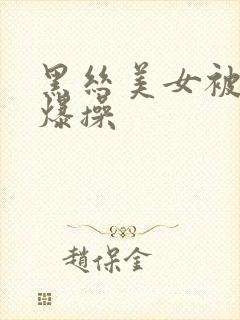 黑丝美女被
爆操
趙保金